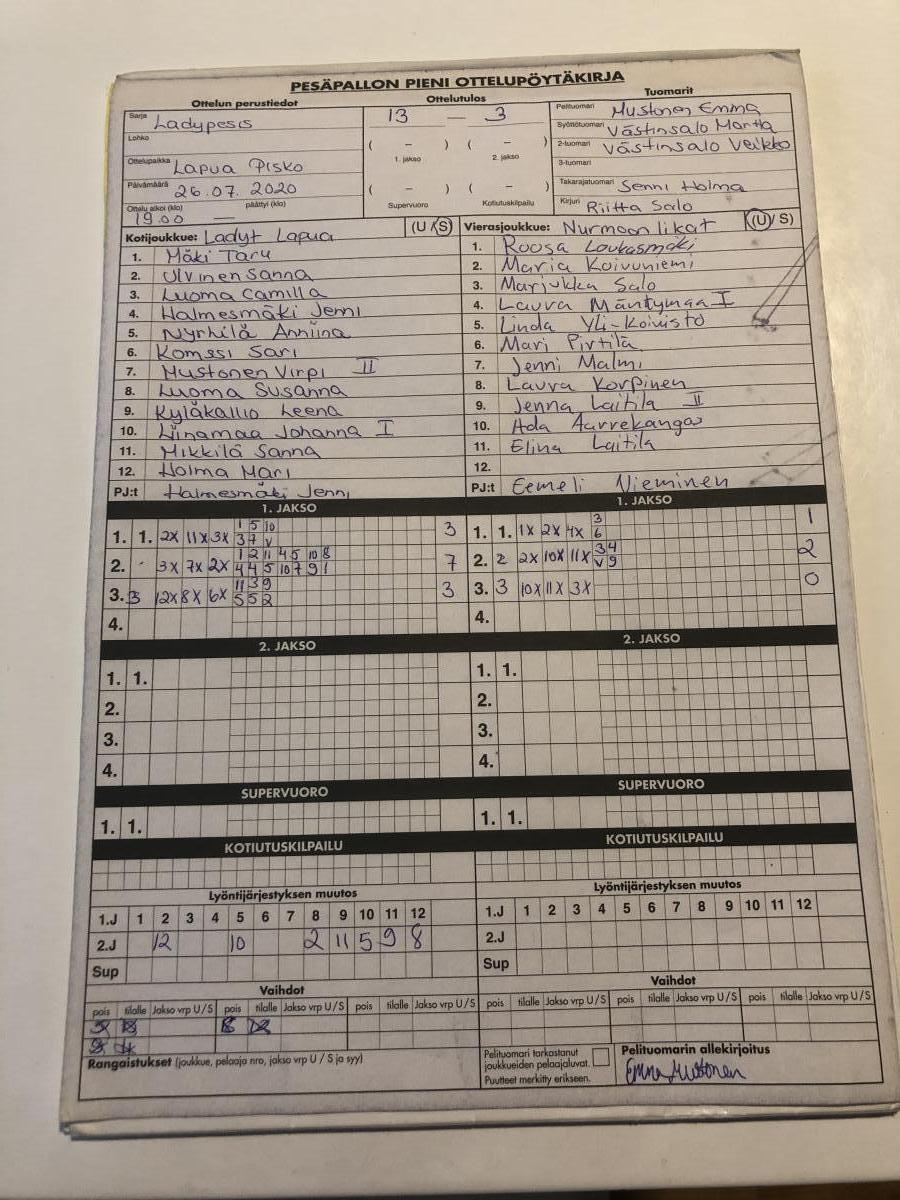 PESÄPALLON PIENI OTTELUPÖYTÄKIRJA
Ottelun perustiedot Ottelutulos Tuomarit
Sarja Ladypesis
Lohko
Ottelupaikka Lapua Pisko
Päivämäärä 26.07.2020
Ottelu alkoi (klo) 19.00 — päättyi (klo)
13 — 3
( – ) ( – )
1. jakso 2. jakso
( – ) ( – )
Supervuoro Kotiutuskilpailu
Pelituomari Mustonen Emma
Syöttötuomari Västinsalo Martta
2-tuomari Västinsalo Veikko
3-tuomari
Takarajatuomari Senni Holma
Kirjuri Riitta Salo
Kotijoukkue: Ladyt Lapua (U/S)
1. Mäki Taru
2. Ulvinen Sanna
3. Luoma Camilla
4. Halmesmäki Jenni
5. Nyrhilä Anniina
6. Komssi Sari
7. Mustonen Virpi II
8. Luoma Susanna
9. Kyläkallio Leena
10. Liinamaa Johanna I
11. Mikkilä Sanna
12. Holma Mari
PJ:t Halmesmäki Jenni
Vierasjoukkue: Nurmoon likat (U/S)
1. Roosa Loukasmäki
2. Maria Koivuniemi
3. Marjukka Salo
4. Laura Mäntymaa I
5. Linda Yli-Koivisto
6. Mari Pirtilä
7. Jenni Malmi
8. Laura Korpinen
9. Jenna Laitila II
10. Ada Aarrekangas
11. Elina Laitila
12.
PJ:t Eemeli Nieminen
1. JAKSO
1 5 10
1. 1. 2x 11x 3x 37 v 3
1 2 11 4 5 10 8
2. 3x 7x 2x 4 4 5 10 7 9 1 7
11 3 9
3. 3 12x 8x 6x 5 5 2 3
4.
1. JAKSO
3
1. 1. 1x 2x 4x 6 1
3 4
2. 2 2x 10x 11x v 9 2
3. 3 10x 11x 3x 0
4.
2. JAKSO
1. 1.
2.
3.
4.
2. JAKSO
1. 1.
2.
3.
4.
SUPERVUORO
1. 1.
SUPERVUORO
1. 1.
KOTIUTUSKILPAILU
KOTIUTUSKILPAILU
Lyöntijärjestyksen muutos
1.J 1 2 3 4 5 6 7 8 9 10 11 12
2.J 12 10 2 11 5 9 8
Sup
Lyöntijärjestyksen muutos
1.J 1 2 3 4 5 6 7 8 9 10 11 12
2.J
Sup
Vaihdot
pois tilalle Jakso vrp U/S pois tilalle Jakso vrp U/S pois tilalle Jakso vrp U/S
Vaihdot
pois tilalle Jakso vrp U/S pois tilalle Jakso vrp U/S pois tilalle Jakso vrp U/S
Rangaistukset (joukkue, pelaaja nro, jakso vrp U / S ja syy)
Pelituomari tarkastanut
joukkueiden pelaajaluvat.
Puutteet merkitty erikseen.
Pelituomarin allekirjoitus
Emma Mustonen